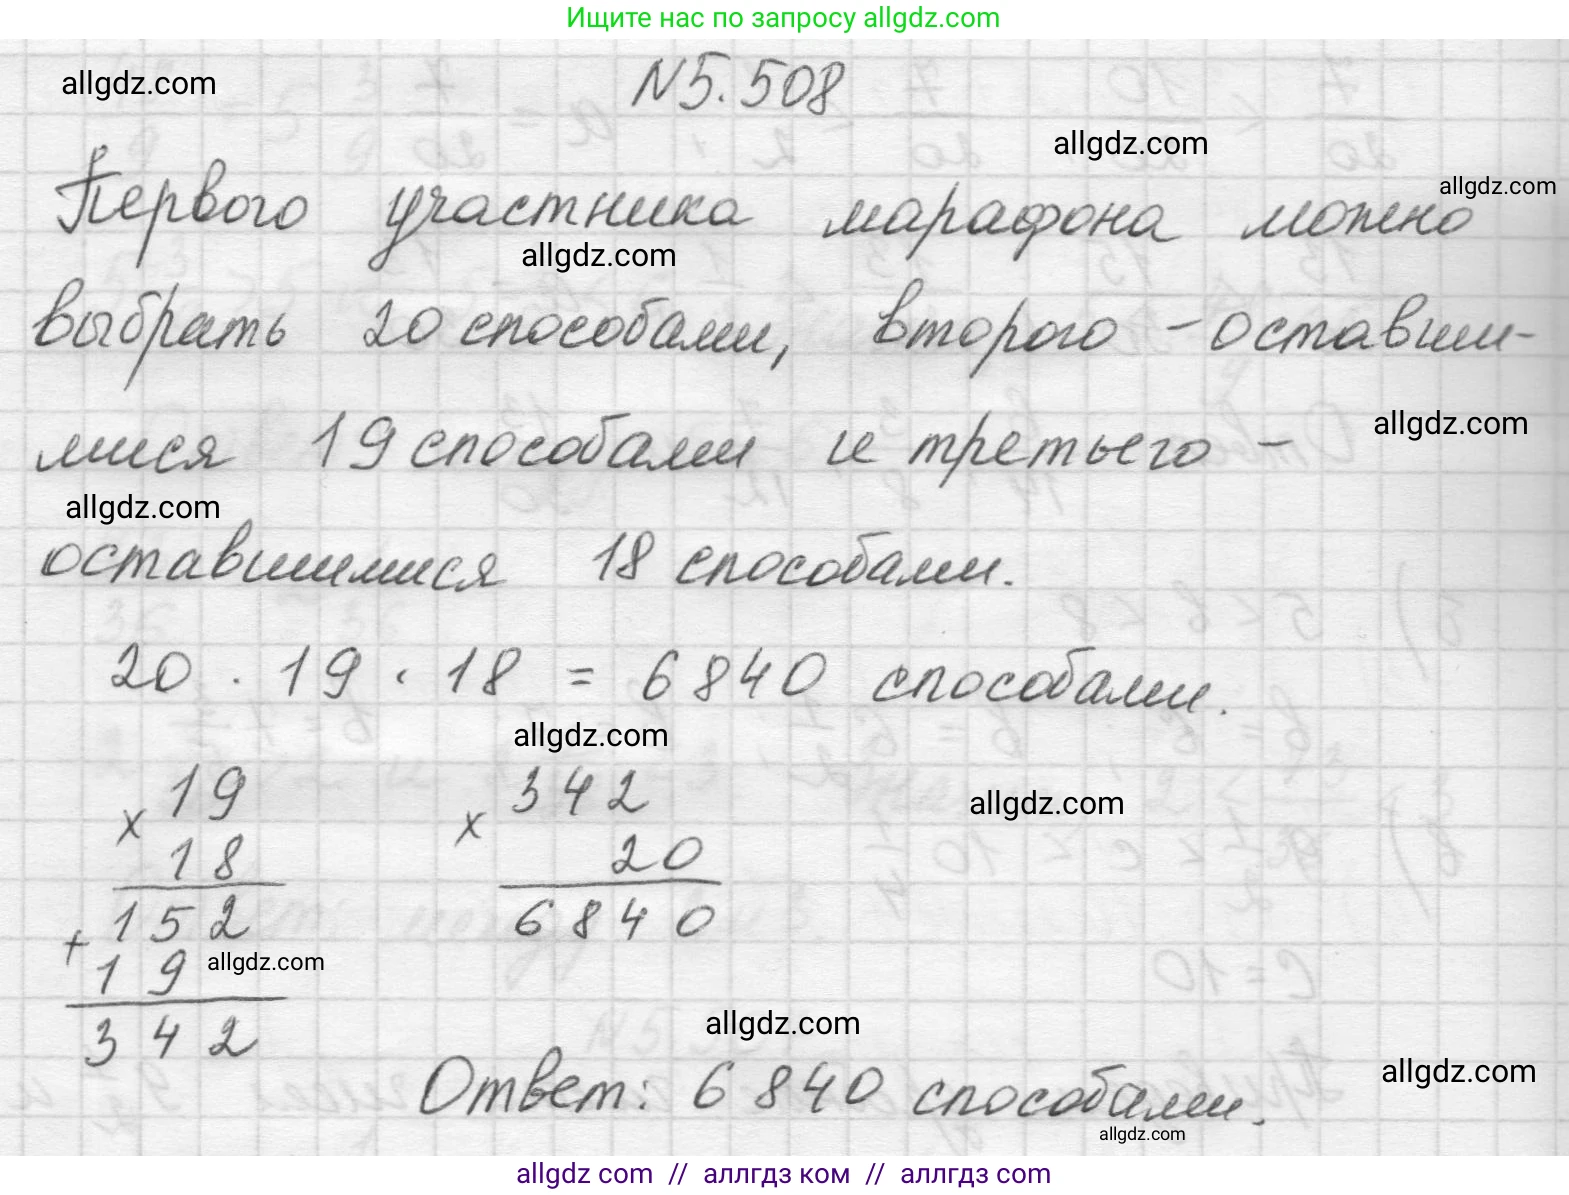 Ищите нас по запросу allgdz.com
allgdz.com
N5.508
allgdz.com
allgdz.com
Первого участника марафона можно
allgdz.com
выбрать 20 способами, второго - оставши-
мися 19 способами и третьего -
allgdz.com
allgdz.com
оставшимися 18 способами.
20 · 19 · 18 = 6840 способами.
allgdz.com
19 342
allgdz.com
x x
18 20
152 6840
+
19
allgdz.com
342
allgdz.com
Ответ: 6840 способами.
allgdz.com
allgdz.com
allgdz com // аллгдз ком // аллгдз com